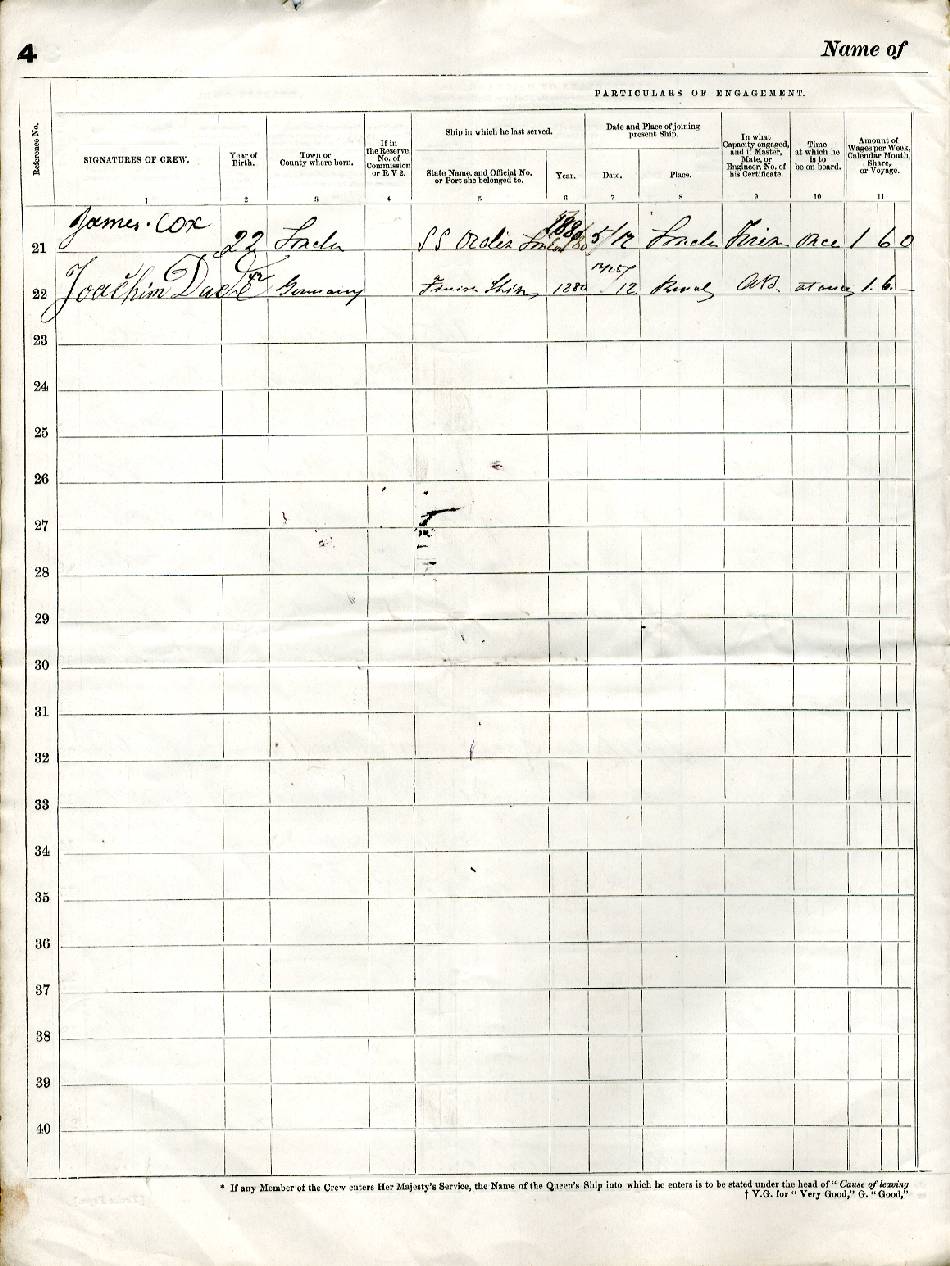 4
Name of
PARTICULARS OF ENGAGEMENT.
Reference No.
SIGNATURES OF CREW.
Year of Birth.
Town or County where born.
If in the Reserve, No. of Commission or R V 2.
Ship in which he last served.
State Name, and Official No. or Port she belonged to.
Year.
Date and Place of joining present Ship.
Date.
Place.
In what Capacity engaged, and if Master, Mate, or Engineer, No. of his Certificate.
Time at which he is to be on board.
Amount of Wages per Week, Calendar Month, Share, or Voyage.
1 2 3 4 5 6 7 8 9 10 11
21 James Cox 22 SS 5/12 1 6 0
22 Joachim Germany /12 AB. at once 1. 6. –
23
24
25
26
27
28
29
30
31
32
33
34
35
36
37
38
39
40
* If any Member of the Crew enters Her Majesty's Service, the Name of the Queen's Ship into which he enters is to be stated under the head of "Cause of leaving
† V.G. for "Very Good," G. "Good,"